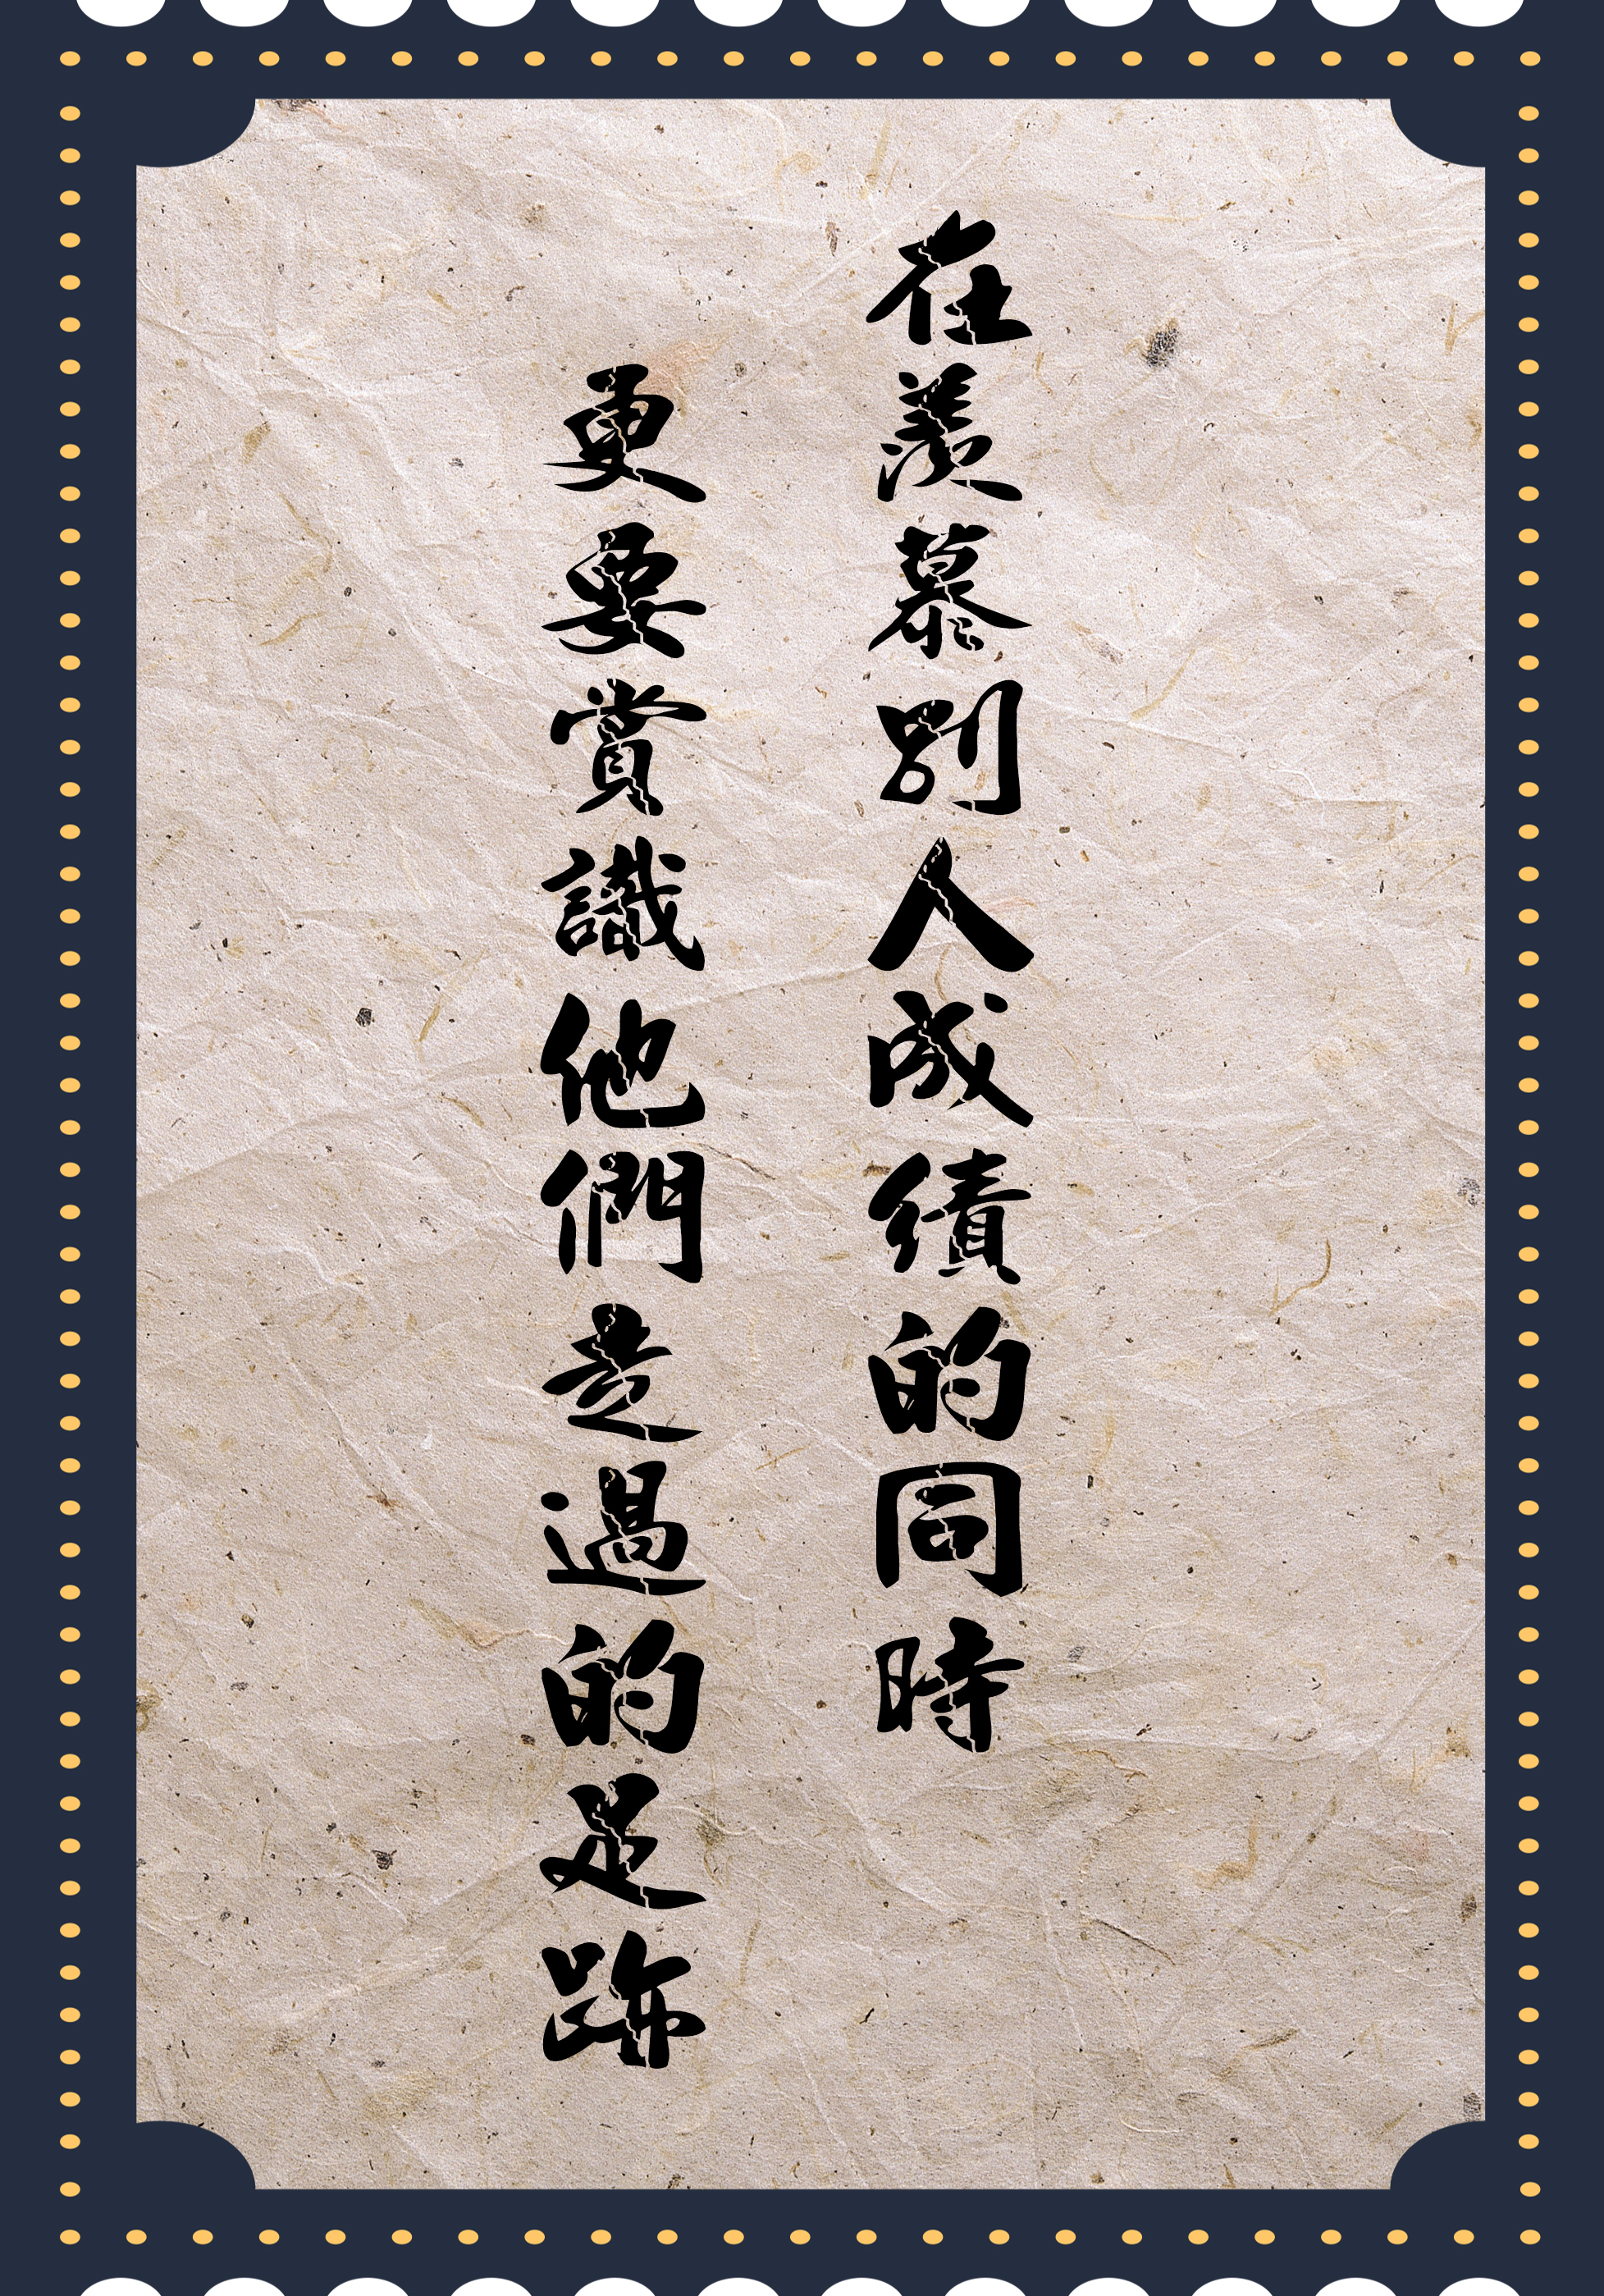 在羨慕別人成績的同時
更要賞識他們走過的足跡